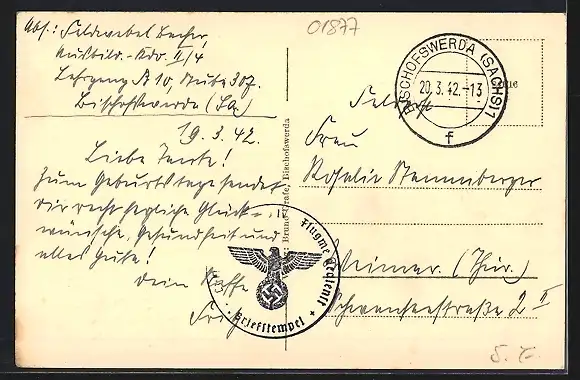 01877
Abs.: Feldwebel
Ausbild.-Kdo. II/4
Lehrgang A 10, Stube 307.
Bischofswerda (Sa.)
19.3.42.
Liebe Tante!
Zum Geburtstage sendet
dir recht herzliche Glück-
wünsche, Gesundheit und
alles Gute!
Dein Neffe
Fritz
Bruno Grafe, Bischofswerda
BISCHOFSWERDA (SACHS) 1
20.3.42.-13
f
Feldpost
Frau
Rosalie
Weimar. (Thür.)
Schwanseestraße 2 II
Briefstempel